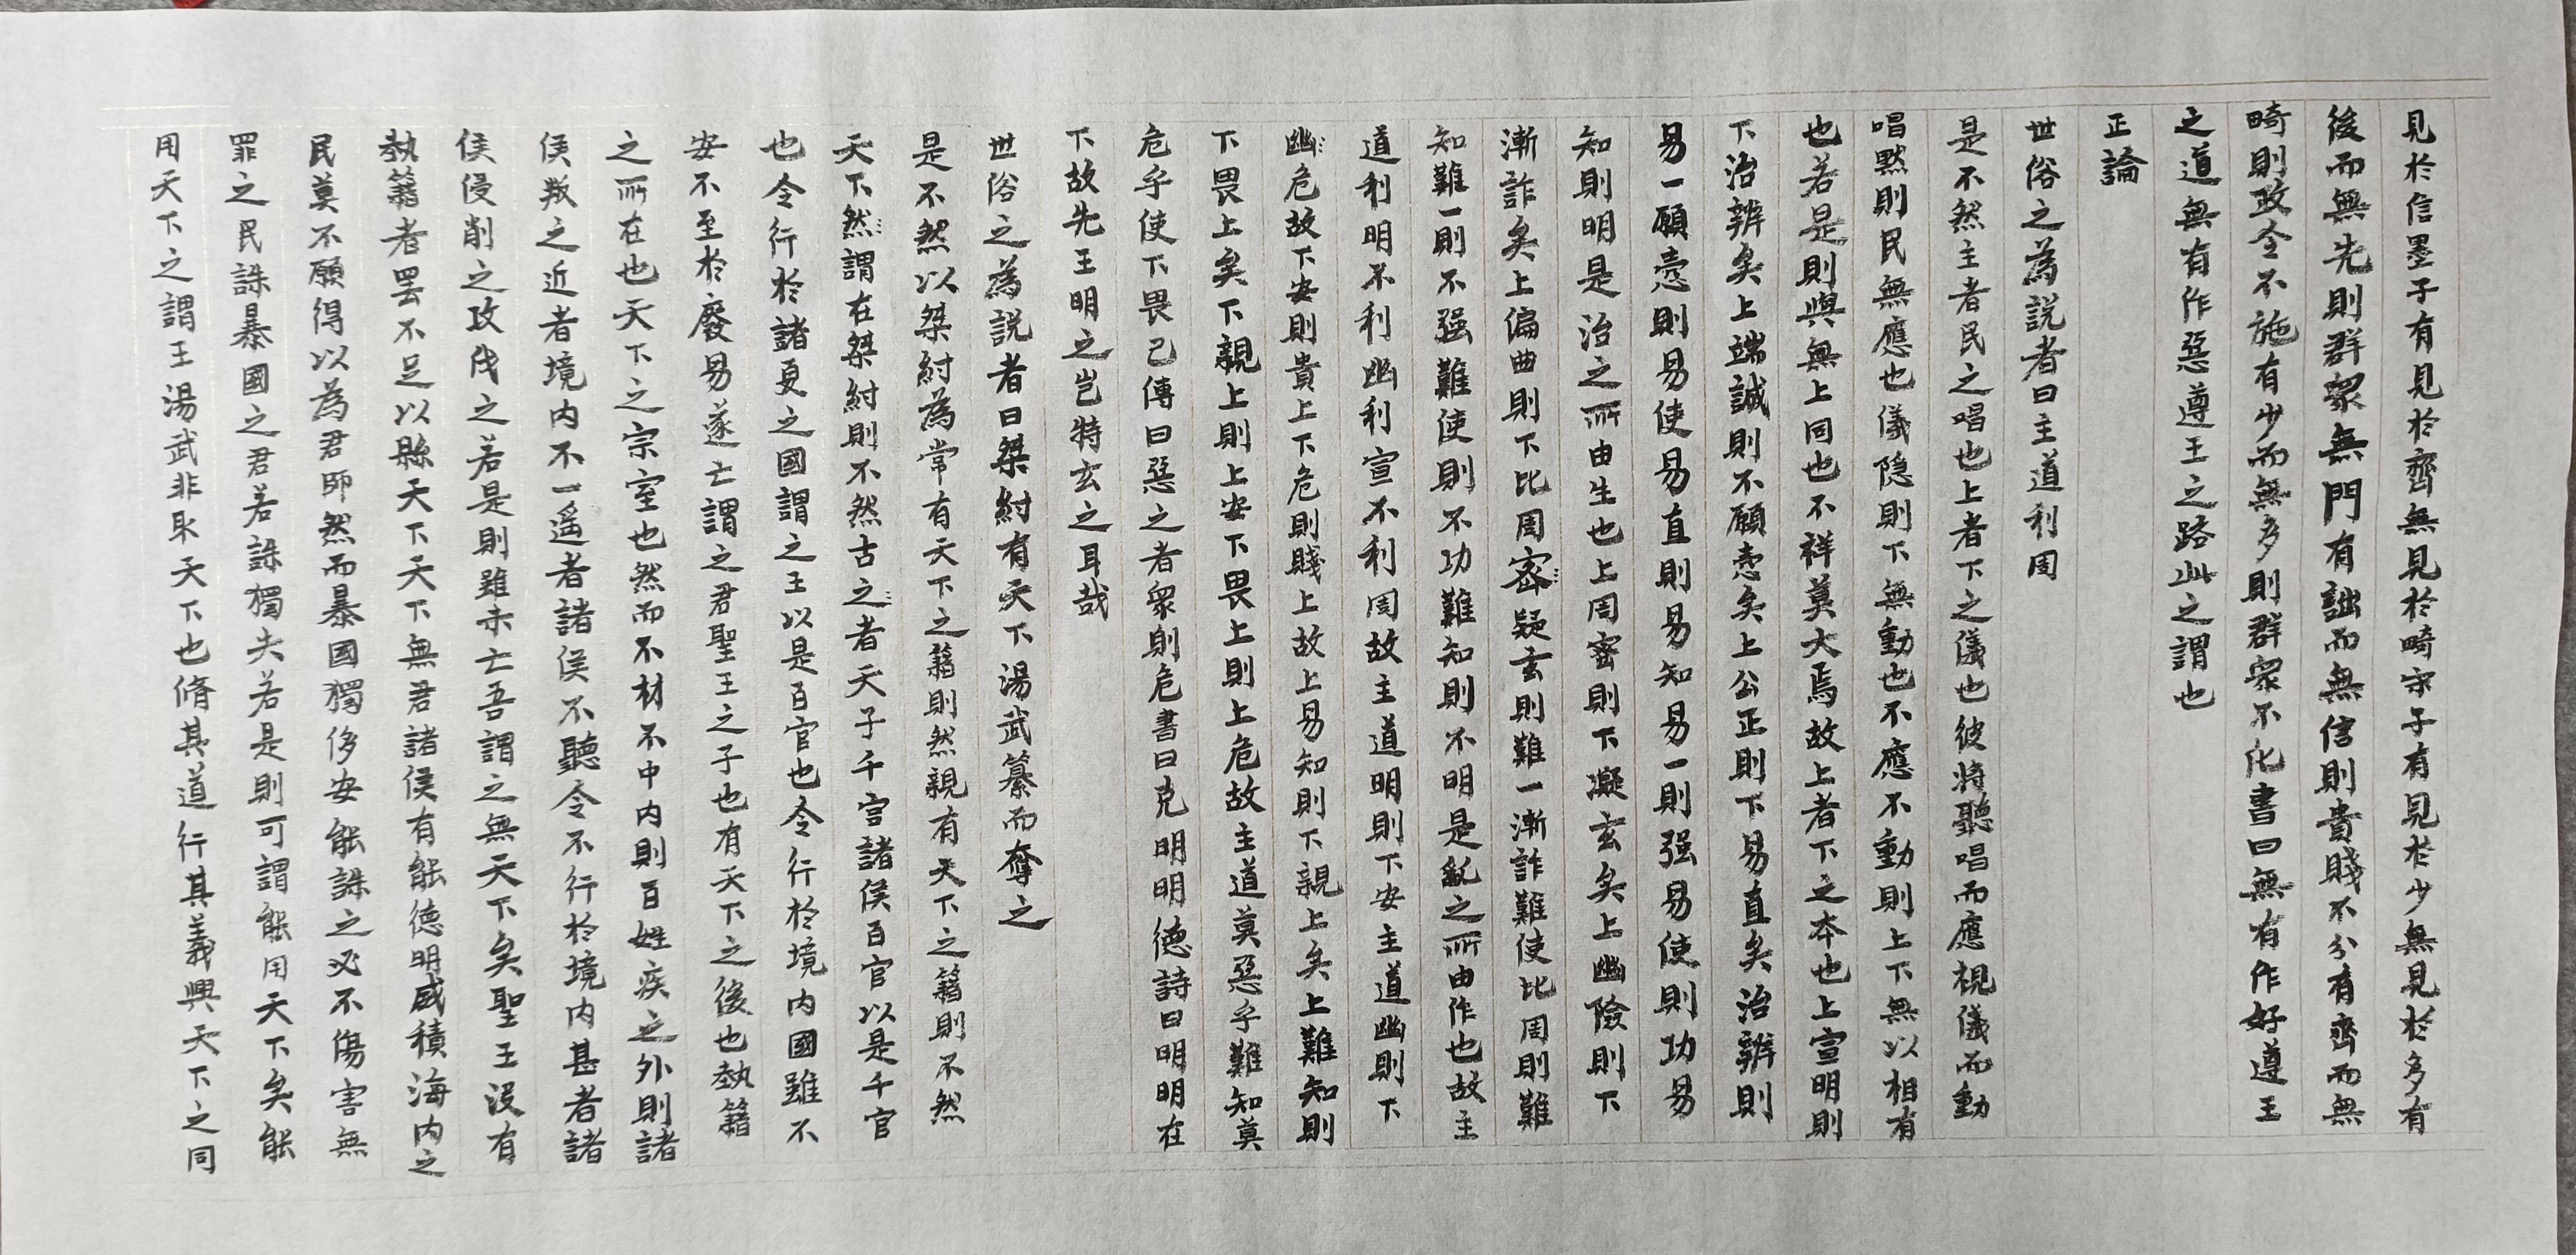 見於信墨子有見於齊無見於畸宋子有見於少無見於多有
後而無先則群衆無門有詘而無信則貴賤不分有齊而無
畸則政令不施有少而無多則群衆不化書曰無有作好遵王
之道無有作惡遵王之路此之謂也
正論
世俗之為説者曰主道利周
是不然主者民之唱也上者下之儀也彼將聽唱而應視儀而動
唱黙則民無應也儀隐則下無動也不應不動則上下無以相有
也若是則與無上同也不祥莫大焉故上者下之本也上宣明則
下治辨矣上端誠則不願愨矣上公正則下易直矣治辨則
易一願愨則易使易直則易知易一則强易使則功易
知則明是治之所由生也上周密則下凝玄矣上幽險則下
漸詐矣上偏曲則下比周密疑玄則難一漸詐難使比周則難
知難一則不强難使則不功難知則不明是亂之所由作也故主
道利明不利幽利宣不利周故主道明則下安主道幽則下
幽危故下安則貴上下危則賤上故上易知則下親上矣上難知則
下畏上矣下親上則上安下畏上則上危故主道莫惡乎難知莫
危乎使下畏己傳曰惡之者衆則危書曰克明明德詩曰明明在
下故先王明之岂特玄之耳哉
世俗之為説者曰桀紂有天下湯武篡而奪之
是不然以桀紂為常有天下之籍則然親有天下之籍則不然
天下然謂在桀紂則不然古之者天子千官諸侯百官以是千官
也令行於諸夏之國謂之王以是百官也令行於境内國雖不
安不至於廢易遂亡謂之君聖王之子也有天下之後也埶籍
之所在也天下之宗室也然而不材不中内則百姓疾之外則諸
侯叛之近者境内不一遥者諸侯不聽令不行於境内甚者諸
侯侵削之攻伐之若是則雖未亡吾謂之無天下矣聖王沒有
埶籍者罢不足以縣天下天下無君諸侯有能德明威積海内之
民莫不願得以為君師然而暴國獨侈安能誅之必不傷害無
罪之民誅暴國之君若誅獨夫若是則可謂能用天下矣能
用天下之謂王湯武非取天下也脩其道行其義興天下之同